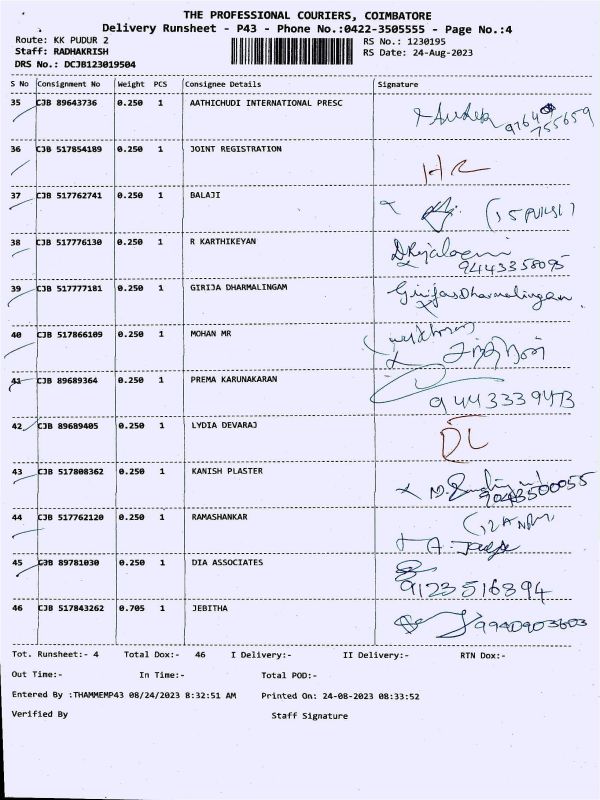 THE PROFESSIONAL COURIERS, COIMBATORE
Delivery Runsheet - P43 - Phone No.:0422-3505555 - Page No.:4
Route: KK PUDUR 2 RS No.: 1230195
Staff: RADHAKRISH RS Date: 24-Aug-2023
DRS No.: DCJB123019504
S No Consignment No Weight PCS Consignee Details Signature
35 CJB 89643736 0.250 1 AATHICHUDI INTERNATIONAL PRESC
755659
36 CJB 517854189 0.250 1 JOINT REGISTRATION
37 CJB 517762741 0.250 1 BALAJI
38 CJB 517776130 0.250 1 R KARTHIKEYAN
94443358095
39 CJB 517777181 0.250 1 GIRIJA DHARMALINGAM GirijaDharmalingam
40 CJB 517866109 0.250 1 MOHAN MR
41 CJB 89689364 0.250 1 PREMA KARUNAKARAN
9443339473
42 CJB 89689405 0.250 1 LYDIA DEVARAJ DL
43 CJB 517808362 0.250 1 KANISH PLASTER
9043500055
44 CJB 517762120 0.250 1 RAMASHANKAR
45 CJB 89781030 0.250 1 DIA ASSOCIATES
9123516894
46 CJB 517843262 0.705 1 JEBITHA 9940903603
Tot. Runsheet:- 4 Total Dox:- 46 I Delivery:- II Delivery:- RTN Dox:-
Out Time:- In Time:- Total POD:-
Entered By :THAMMEMP43 08/24/2023 8:32:51 AM Printed On: 24-08-2023 08:33:52
Verified By Staff Signature